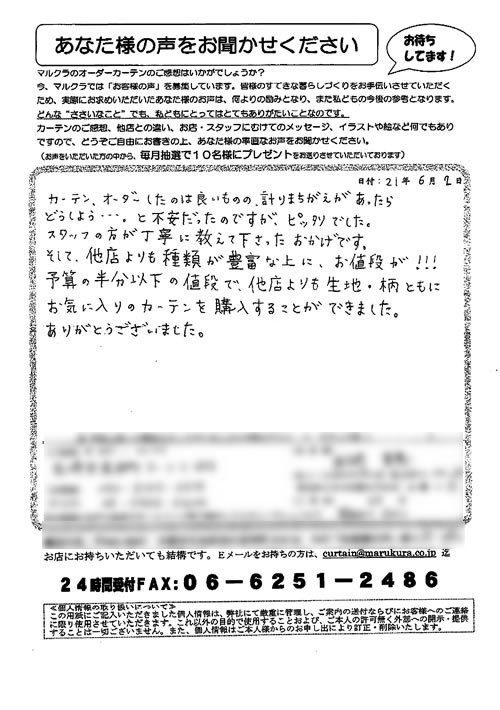 あなた様の声をお聞かせください
お待ち
してます!
マルクラのオーダーカーテンのご感想はいかがでしょうか?
今、マルクラでは「お客様の声」を募集しています。皆様のすてきな暮らしづくりをお手伝いさせていただく
ため、実際にお求めいただいたあなた様のお声は、何よりの励みとなり、また私どもの今後の参考となります。
どんな“ささいなこと”でも、私どもにとってはとてもありがたいことなのです。
カーテンのご感想、他店との違い、お店・スタッフにむけてのメッセージ、イラストや絵など何でもあり
ですので、どうぞご自由にお書きの上、あなた様の率直なお声をお聞かせください。
(お声をいただいた方の中から、毎月抽選で10名様にプレゼントをお送りさせていただいております)
日付:21年 6月 2日
カーテン、オーダーしたのは良いものの、計りまちがえがあったら
どうしよう…。と不安だったのですが、ピッタリでした。
スタッフの方が丁寧に教えて下さったおかげです。
そして、他店よりも種類が豊富な上に、お値段が!!!
予算の半分以下の値段で、他店よりも生地・柄ともに
お気に入りのカーテンを購入することができました。
ありがとうございました。
お店にお持ちいただいても結構です。Eメールをお持ちの方は、curtain@marukura.co.jp 迄
24時間受付FAX:06-6251-2486
≪個人情報の取り扱いについて≫
この用紙にご記入いただきました個人情報は、弊社にて厳重に管理し、ご案内の送付ならびにお客様へのご連絡
に限り使用させていただきます。これ以外の目的で使用することおよび、ご本人の許可無く外部への開示・提供
することは一切ございません。また、個人情報はご本人様からのお申し出により訂正・削除いたします。